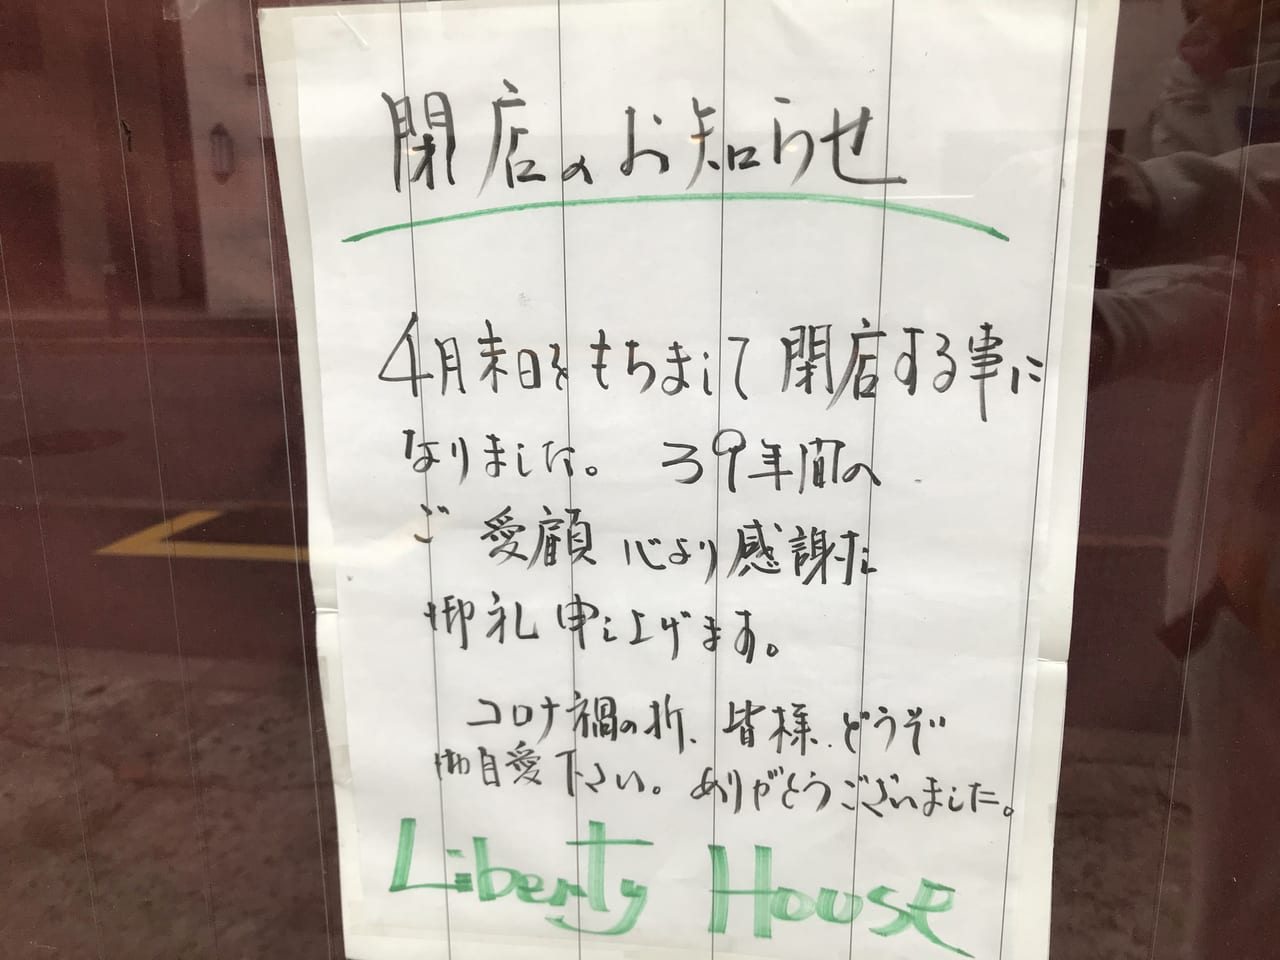 閉店のお知らせ
4月末日をもちまして閉店する事に
なりました。 39年間の
ご愛顧 心より感謝し
御礼申し上げます。
コロナ禍の折、皆様、どうぞ
御自愛下さい。ありがとうございました。
Liberty House